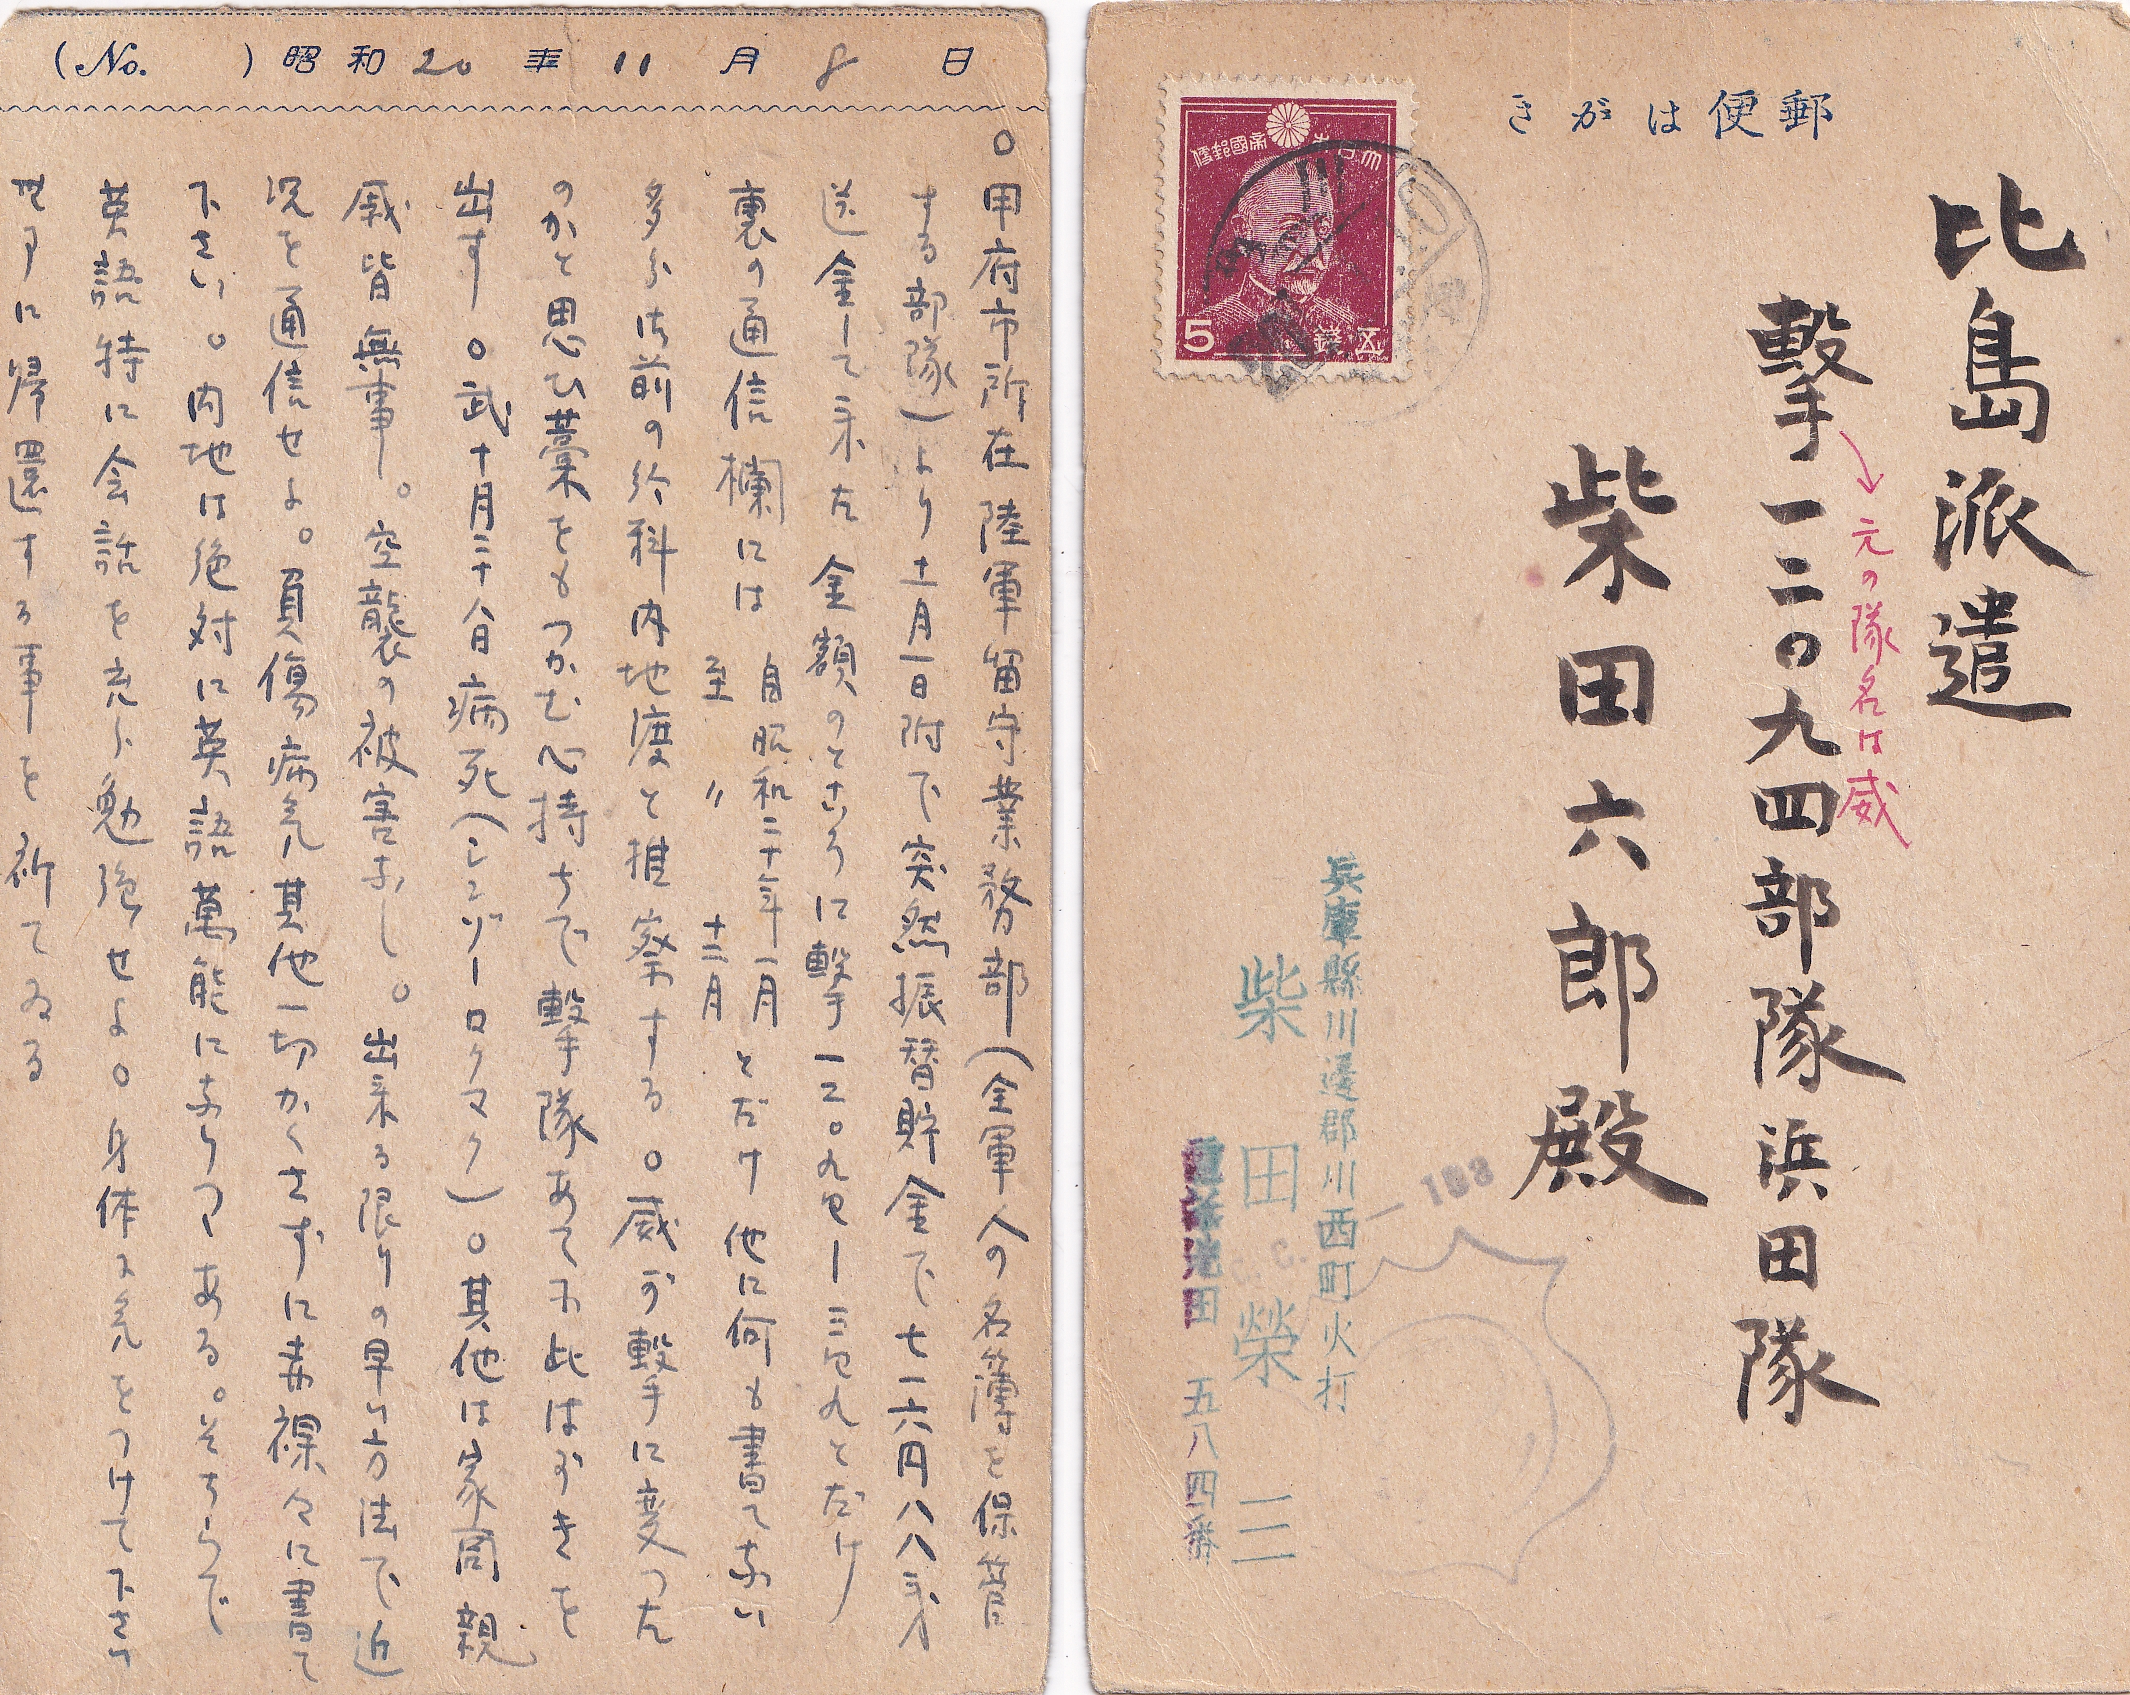 (No. ) 昭和20年11月8日
○甲府市所在陸軍留守業務部(全軍人の名簿を保管
する部隊)より十一月一日附で突然振替貯金で七一六円八八銭
送金して来た金額のところに撃一二〇九四ー三四九とだけ
裏の通信欄には自昭和二十年一月
至〃十二月
とだけ他に何も書てない
多分は前の給料内地渡と推察する。○威が撃に変った
のかと思ひ藁をもつかむ心持ちで撃隊あてに此はがきを
出す。○武十月二十八日病死(シンガーロクマク)○其他は家同親
戚皆無事。空襲の被害なし。出来る限りの早い方法で近
況を通信せよ。負傷病気其他一切かくさずに赤裸々に書て
下さい。○内地は絶対に英語萬能になりつゝある。そちらで
英語特に会話を充分勉強せよ。○身体に気をつけて下さい
無事に帰還する事を祈てゐる
郵便はがき
比島派遣
撃一二〇九四部隊浜田隊
元の隊名は威
柴田六郎殿
大日本帝國郵便
5
五錢
兵庫縣川邊郡川西町火打
柴田榮三
電話池田 五八四番